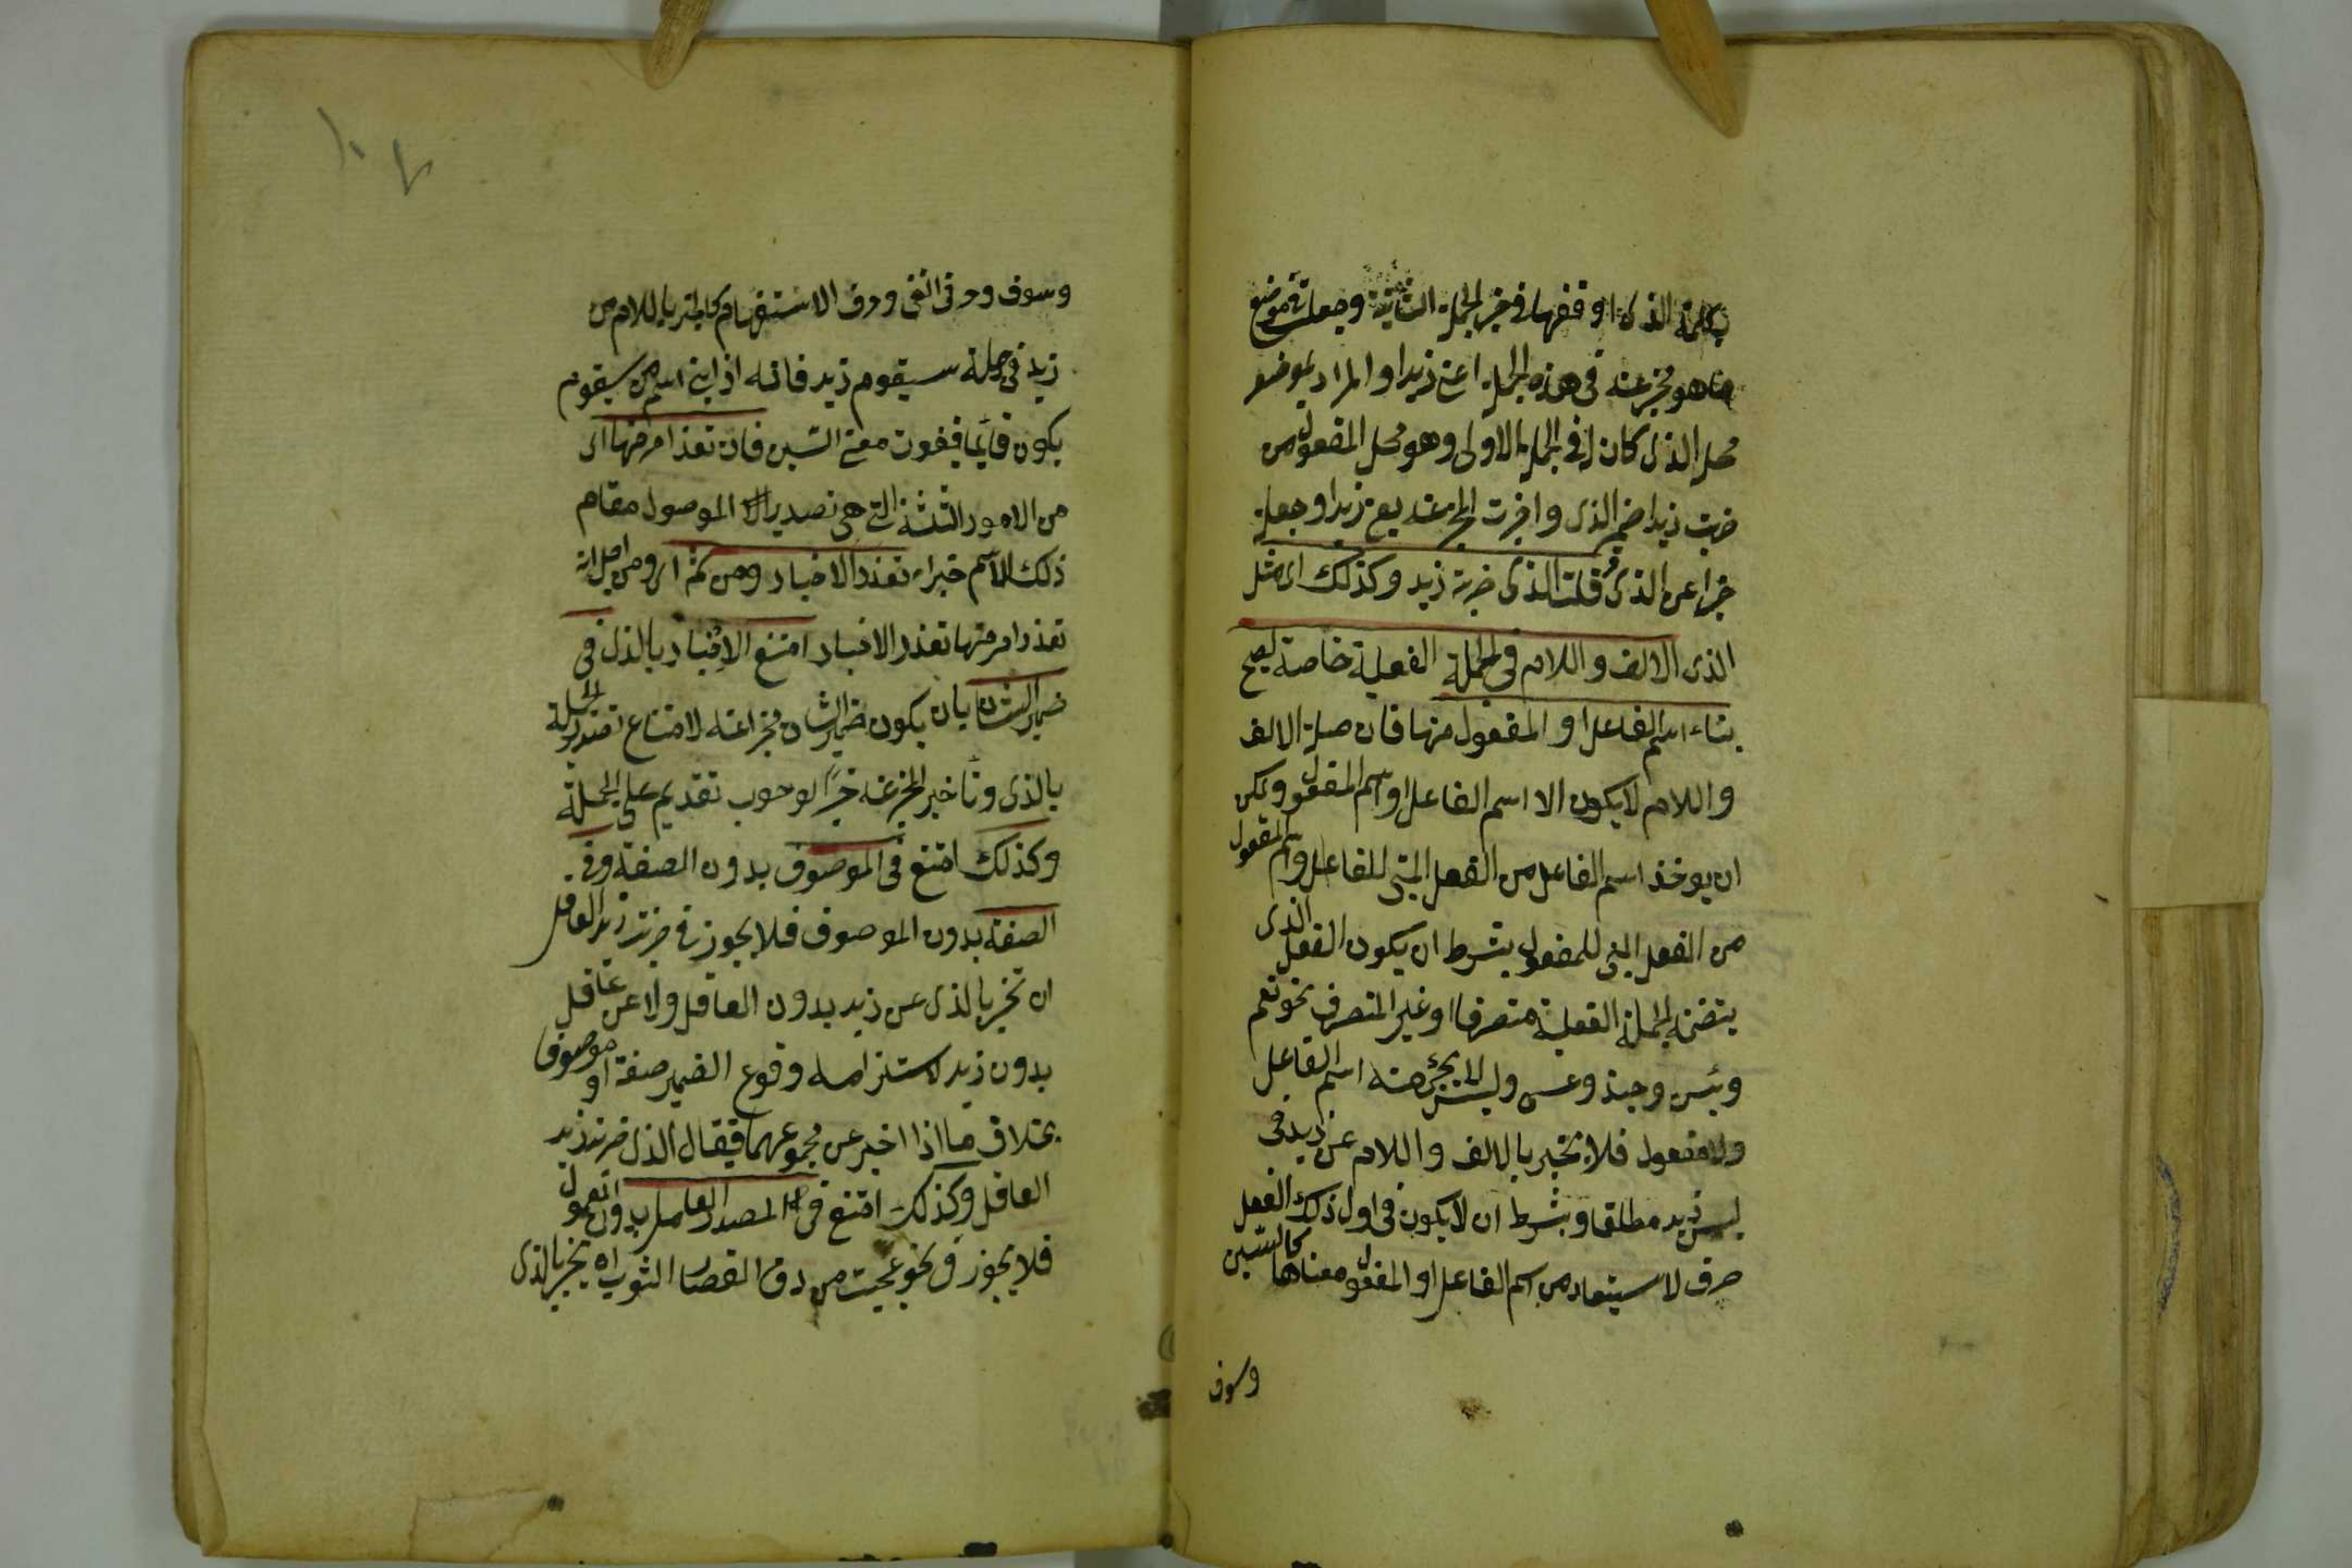 بكلمة الذى اوقعها فى خبر الجملة الثانية وجعلت فى موضع
ما هو مخبر عنه فى هذه الجملة اعنى زيدا والمراد بموضعه
محل الذى كان له فى الجملة الاولى وهو محل المفعول من
ضربت زيدا ضمير الذى واخرت المخبر عنه يعنى زيدا وجعلته
خبرا عن الذى وقلت الذى ضربته زيد وكذلك اى مثل
الذى الالف واللام فى الجملة الفعلية خاصة ليصح
بناء اسم الفاعل او المفعول منها فان صلة الالف
واللام لا يكون الا اسم الفاعل او اسم المفعول ويمكن
ان يوخذ اسم الفاعل من الفعل المبنى للفاعل واسم المفعول
من الفعل المبنى للمفعول بشرط ان يكون الفعل الذى
يتضمنه الجملة الفعلية متصرفا او غير المتصرف نحو نعم
وبئس وحبذا وعسى وليس لا يجئ منه اسم الفاعل
ولا مفعول فلا يخبر بالالف واللام عن زيد فى
ليس زيد مطلقا وبشرط ان لا يكون فى اول ذلك الفعل
حرف لا يستفاد من اسم الفاعل او المفعول معناها كالسين
وسوف
وسوف وحرف النفى وحرف الاستفهام فلا يخبر باللام من
زيد فى جملة سيقوم زيد فانه اذا بنى اسم من سيقوم
يكون قائما فيفوت معنى السين فان تعذر امر منها اى
من الامور الثلثة التى هى تصدير الموصول مقام
ذلك الاسم خبراء تعذر الاخبار ومن ثم اى ومن اجل انه
تعذر امر منها تعذر الاخبار امتنع الاخبار بالذى فى
ضمير الشان بان يكون ضمير الشان مخبرا عنه لامتناع تصدير الجملة
بالذى وتاخير المخبر عنه خبرا لوجوب تقديمه على الجملة
وكذلك امتنع فى الموصوف بدون الصفة وفى
الصفة بدون الموصوف فلا يجوز فى ضربت زيد العاقل
ان تخبر بالذى عن زيد بدون العاقل ولا عن عاقل
بدون زيد لاستلزامه وقوع الضمير صفة او موصوفا
بخلاف ما اذا اخبر عن مجموعهما فيقال الذى ضربته زيد
العاقل وكذلك امتنع فى المصدر العامل بدون المعمول
فلا يجوز فى نحو عجبت من دق القصار الثوب ان يخبر بالذى